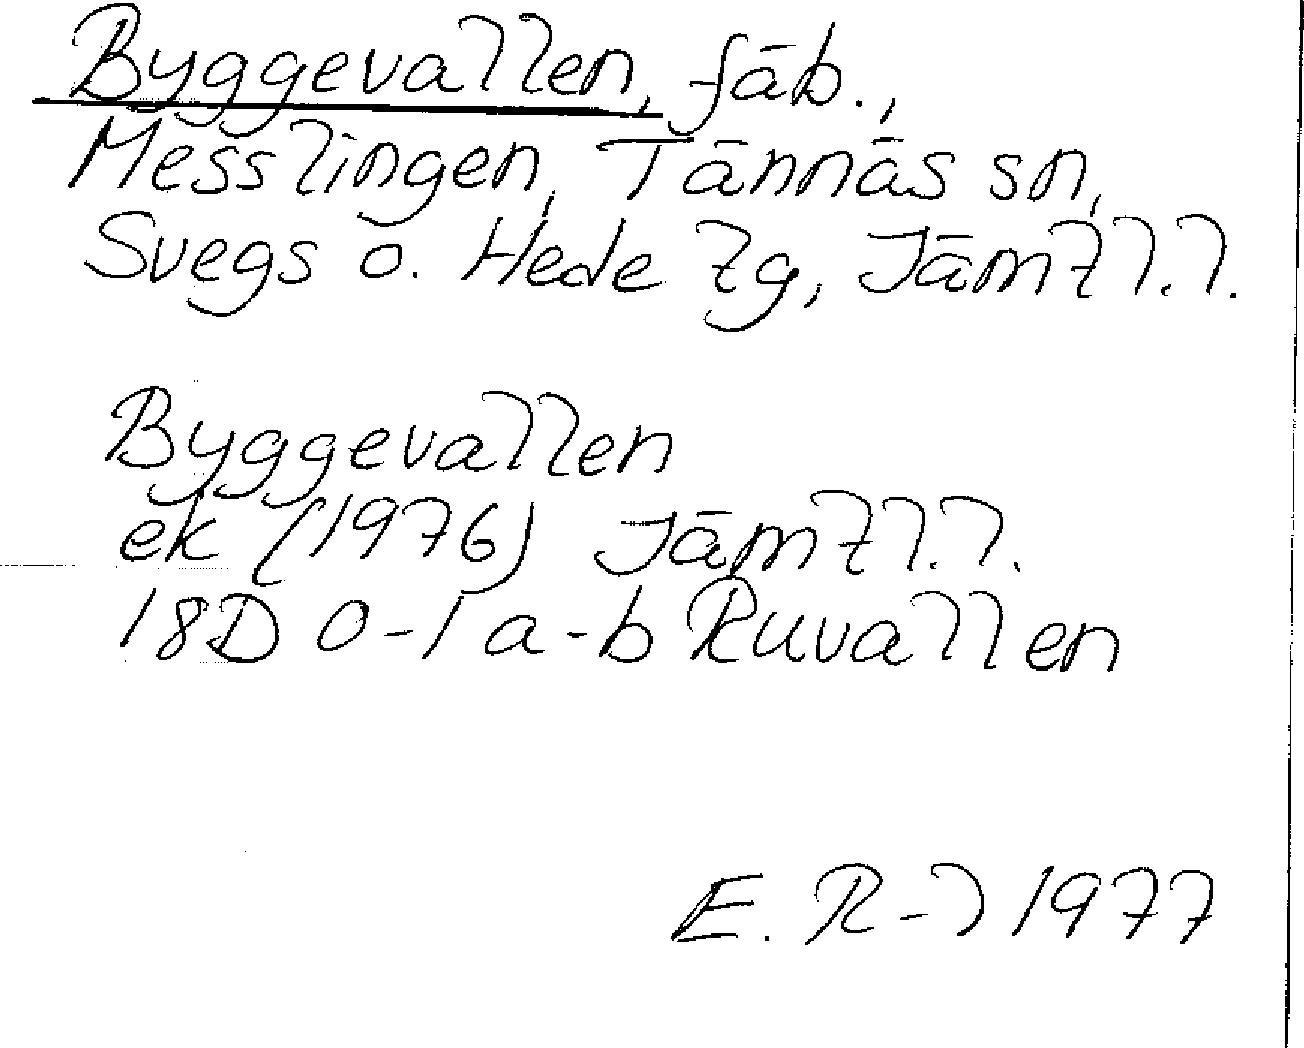 Byggevallen, fäb.,
Messlingen, Tännäs sn,
Svegs o. Hede tg, Jämtl.l.
Byggevallen
ek (1976) Jämtl.l.
18D 0-1 a-b Ruvallen
E. R-l 1977